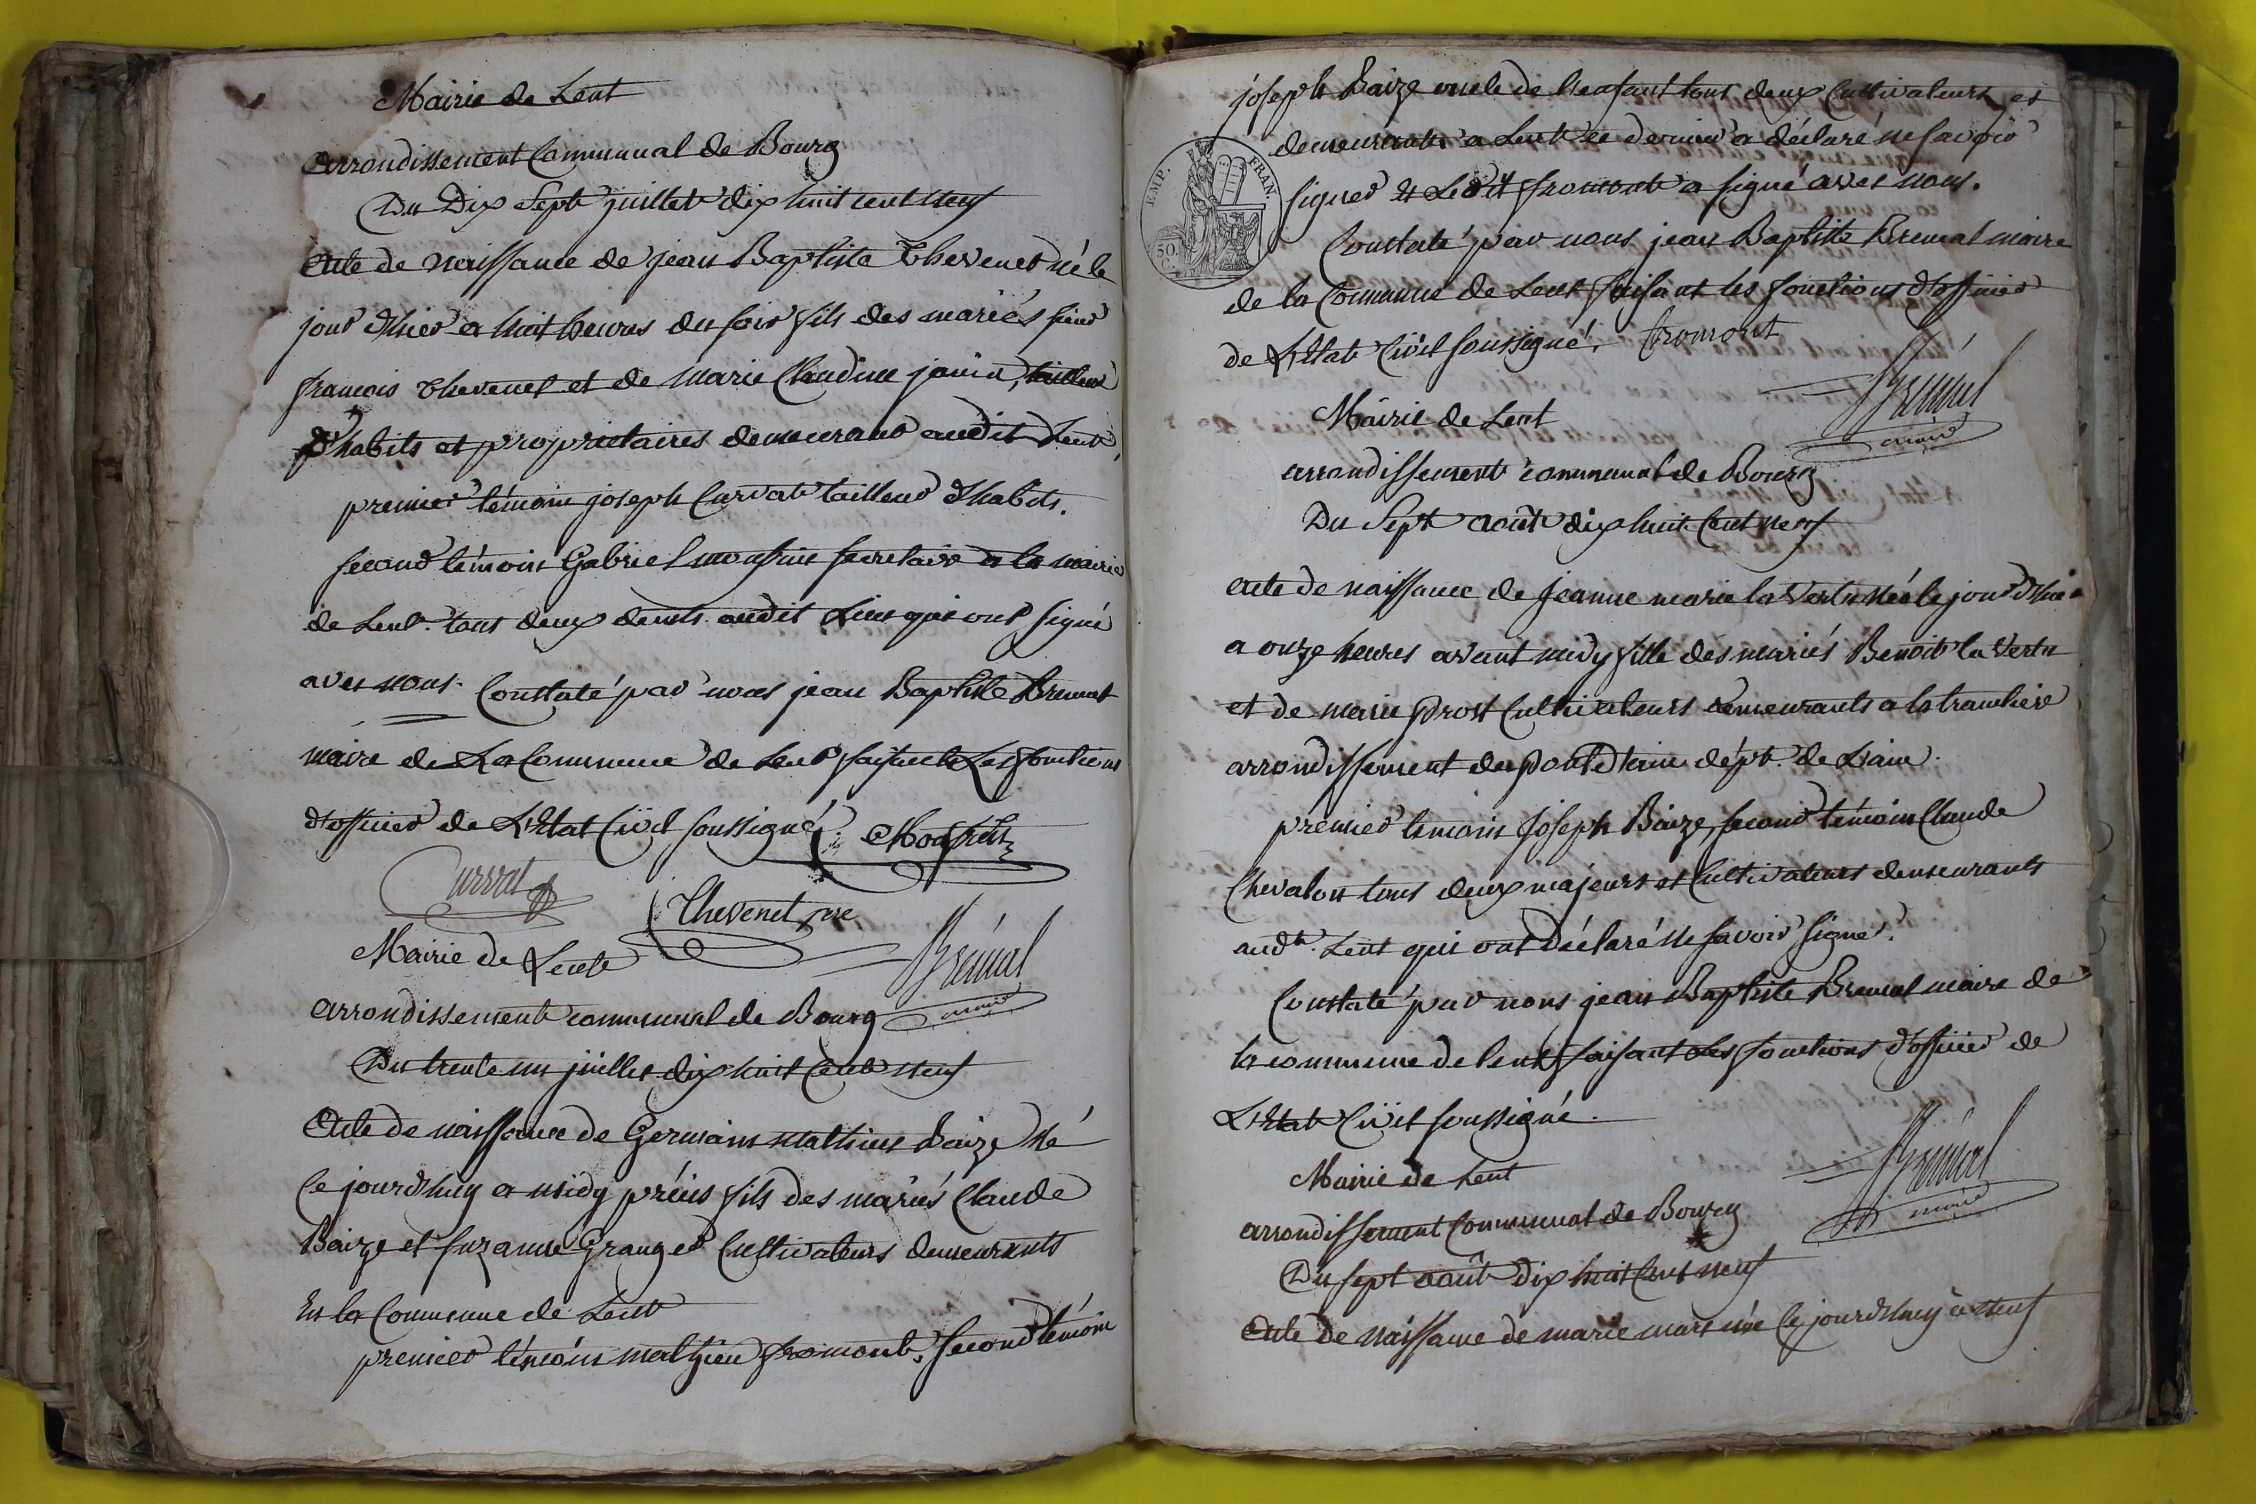 Mairie de Lent
arrondissement Communal de Bourg
Du Dix Sept juillet dix huit cent neuf
acte de naissance de jean Baptiste Thevenet né le
jour d'hier a huit heures du soir fils des mariés sieur
françois Thevenet et de marie Claudine janin, tailleur
d'habits et propriétaires demeurant audit Lent,
premier témoin joseph Curvat tailleur d'habits.
second témoin Gabriel monfrin secretaire de la mairie
de Lent. tous deux demts. audit Lieu qui ont signé
avec nous. Constaté par nous jean Baptiste Brenat
maire de La Commune de Lent faisant Les fonctions
d'officier de L'Etat Civil soussigné.
Currat
Thevenet
Mairie de Lent
Bremal
maire
arrondissement communal de Bourg
Du trente un juillet dix huit Cent neuf
Acte de naissance de Germain mathieu Baize né
Ce jourdhuy a midy précis fils des mariés Claude
Baize et suzanne Granger Cultivateurs demeurants
En la Commune de Lent
premier témoin mathieu fromont, second témoin
joseph Baize oncle de l'enfant tous deux Cultivateurs et
demeurants a Lent ce dernier a déclaré ne savoir
signer et Ledit fromont a signé avec nous.
EMP. FRAN.
50 C.
Constaté par nous jean Baptiste Bremal maire
de la Commune de Lent faisant les fonctions d'officier
de L'Etat Civil soussigné. fromont
Bremal
maire
Mairie de Lent
arrondissement communal de Bourg
Du Sept août dix huit Cent neuf
acte de naissance de jeanne marie la Vertu née le jour d'hier
a onze heures avant midy fille des mariés Benoit la Vertu
et de marie prost Cultivateurs demeurants a la tranchère
arrondissement du pont d'ain dépt. de L'ain.
premier témoin joseph Baize, second témoin Claude
Chevalon tous deux majeurs et Cultivateurs demeurants
audt. Lent qui ont déclaré ne savoir signer.
Constaté par nous jean Baptiste Bremal maire de
la commune de lent faisant les fonctions d'officier de
L'Etat Civil soussigné.
Bremal
maire
Mairie de Lent
arrondissement Communal de Bourg
Du sept août dix huit Cent neuf
acte de naissance de marie née Ce jourdhuy a neuf